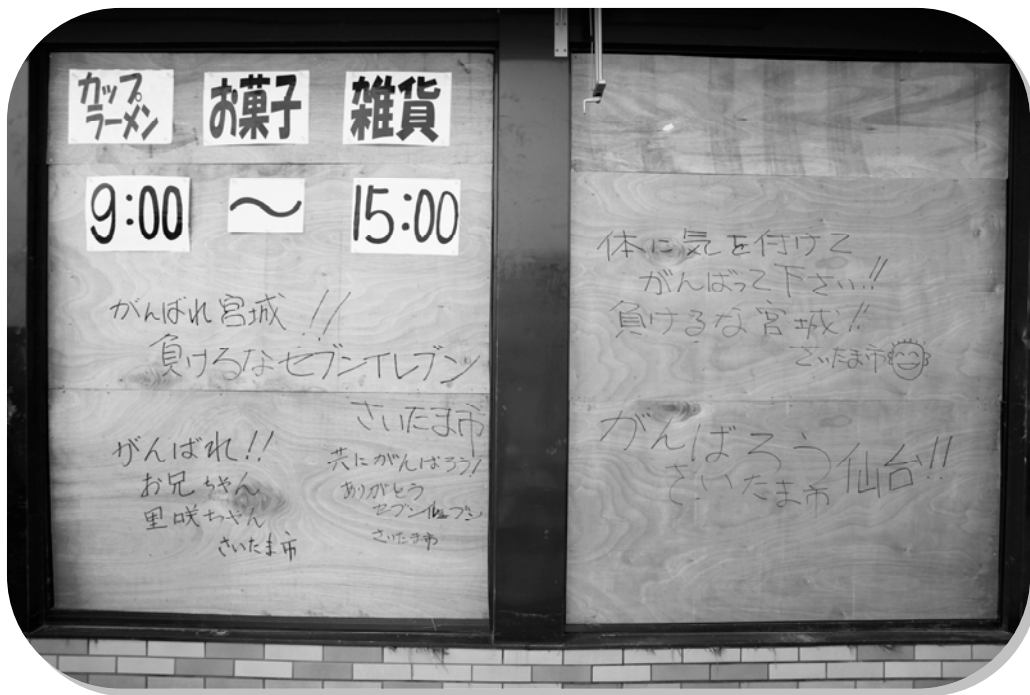 カップ
ラーメン
お菓子
雑貨
9:00 〜 15:00
がんばれ宮城!!
負けるなセブンイレブン
さいたま市
がんばれ!!
お兄ちゃん
里咲ちゃん
さいたま市
共にがんばろう!
ありがとう
セブンイレブン
さいたま市
体に気を付けて
がんばって下さい!!
負けるな宮城!!
さいたま市
がんばろう仙台!!
さいたま市